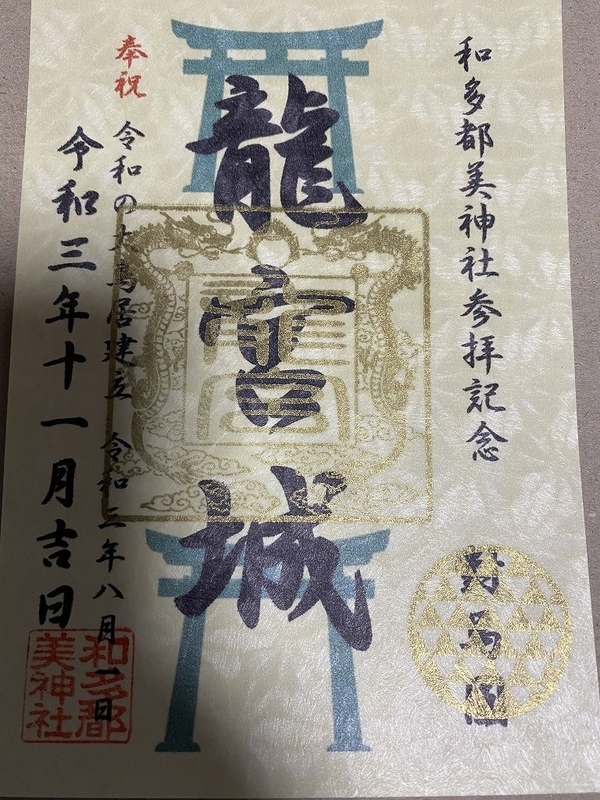 和多都美神社参拝記念
對馬国
龍宮城
奉祝
令和の大鳥居建立 令和三年八月一日
令和三年十一月吉日
和多都
美神社